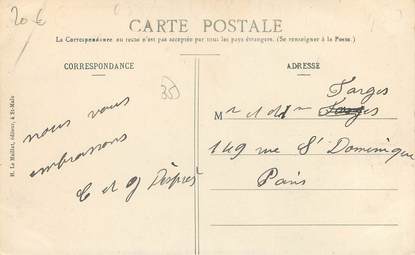 20 €
CARTE POSTALE
La Correspondance au recto n'est pas acceptée par tous les pays étrangers. (Se renseigner à la Poste.)
CORRESPONDANCE
ADRESSE
35
nous vous
embrassons
C et G Després
H. Le Maillet, éditeur, à St-Malo
Farges
Mr et Mme Farges
149 rue St Dominique
Paris